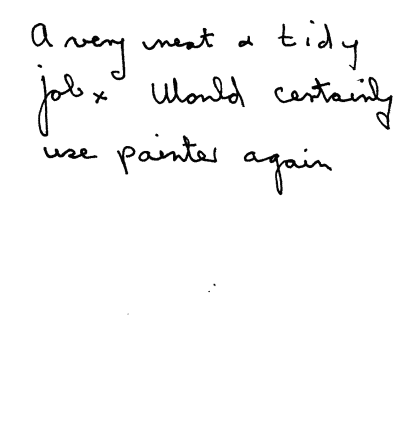 A very neat & tidy
job x Would certainly
use painter again